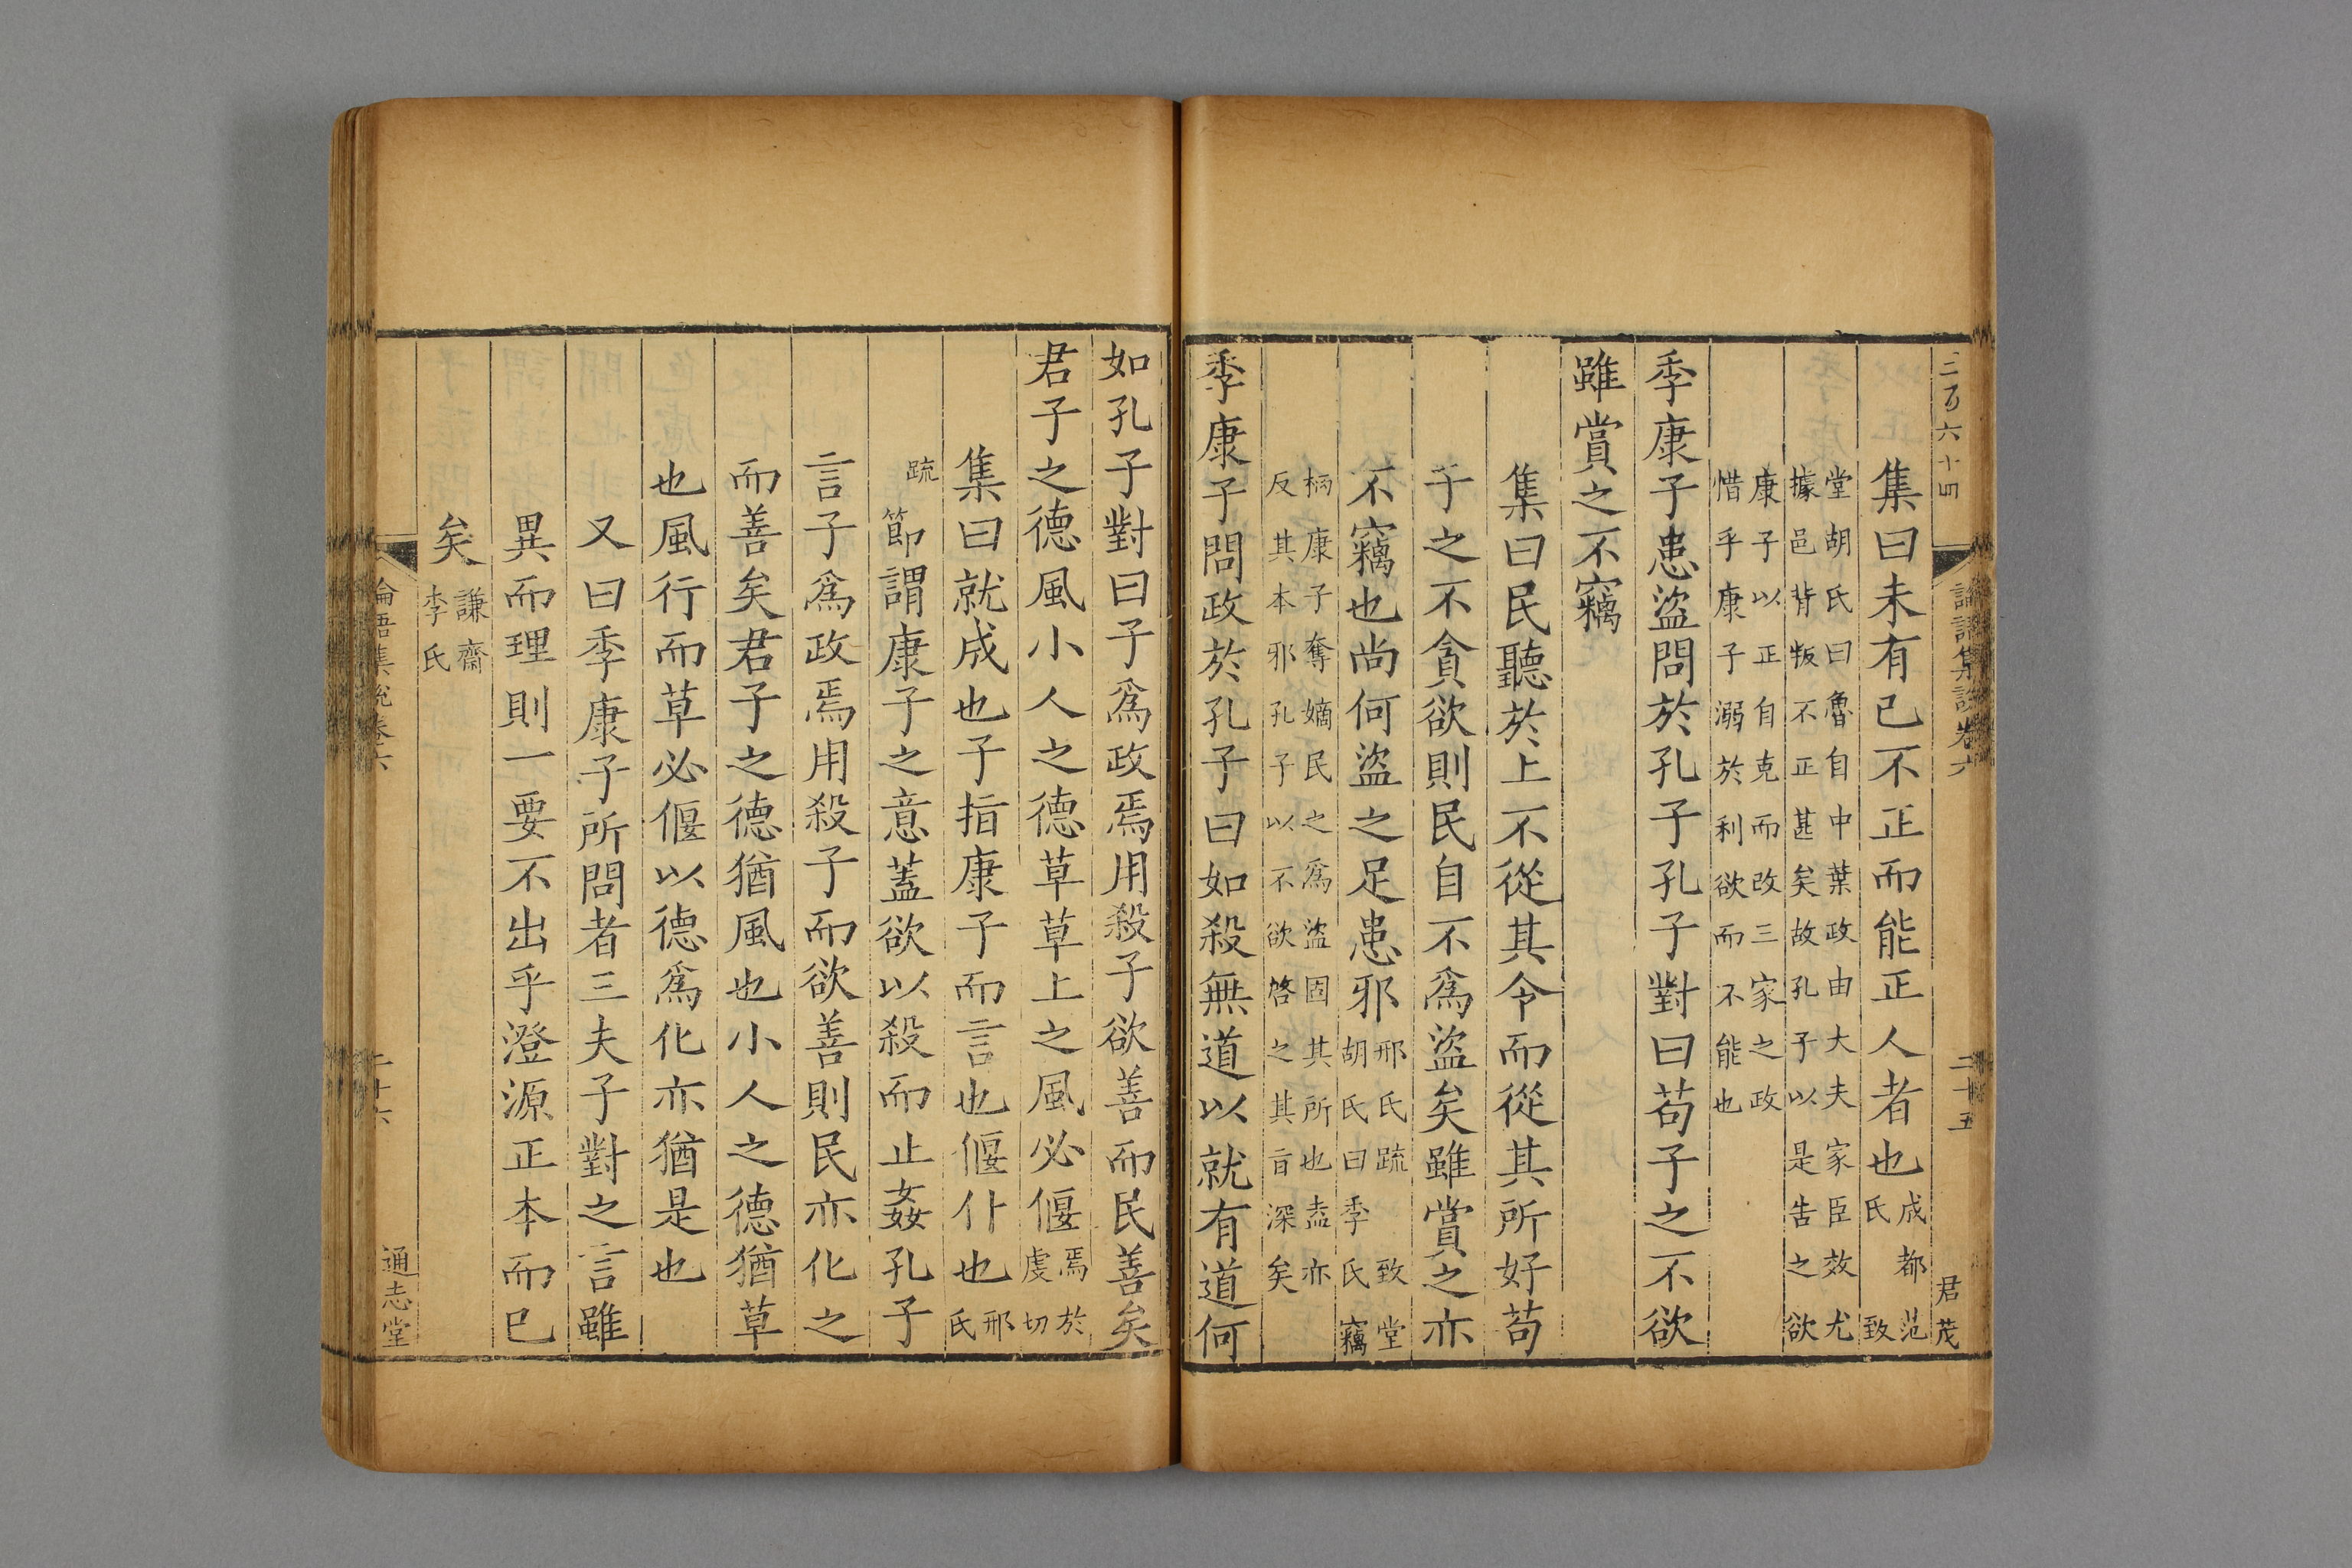 二百六十四
論語集說卷六
二十五
君茂
集曰未有己不正而能正人者也成都范氏
致堂胡氏曰魯自中葉政由大夫家臣效尤據邑背叛不正甚矣故孔子以是告之欲
康子以正自克而改三家之政惜乎康子溺於利欲而不能也
季康子患盜問於孔子孔子對曰苟子之不欲
雖賞之不竊
集曰民聽於上不從其令而從其所好苟
子之不貪欲則民自不爲盜矣雖賞之亦
不竊也尚何盜之足患邪邢氏疏致堂胡氏曰季氏竊
柄康子奪嫡民之爲盜固其所也盍亦反其本邪孔子以不欲啓之其㫖深矣
季康子問政於孔子曰如殺無道以就有道何
如孔子對曰子爲政焉用殺子欲善而民善矣
君子之德風小人之德草草上之風必偃焉於虔切
集曰就成也子指康子而言也偃仆也邢氏
疏節謂康子之意蓋欲以殺而止姦孔子
言子爲政焉用殺子而欲善則民亦化之
而善矣君子之德猶風也小人之德猶草
也風行而草必偃以德爲化亦猶是也
又曰季康子所問者三夫子對之言雖
異而理則一要不出乎澄源正本而已
矣謙齋李氏
論語集說卷六
二十六
通志堂